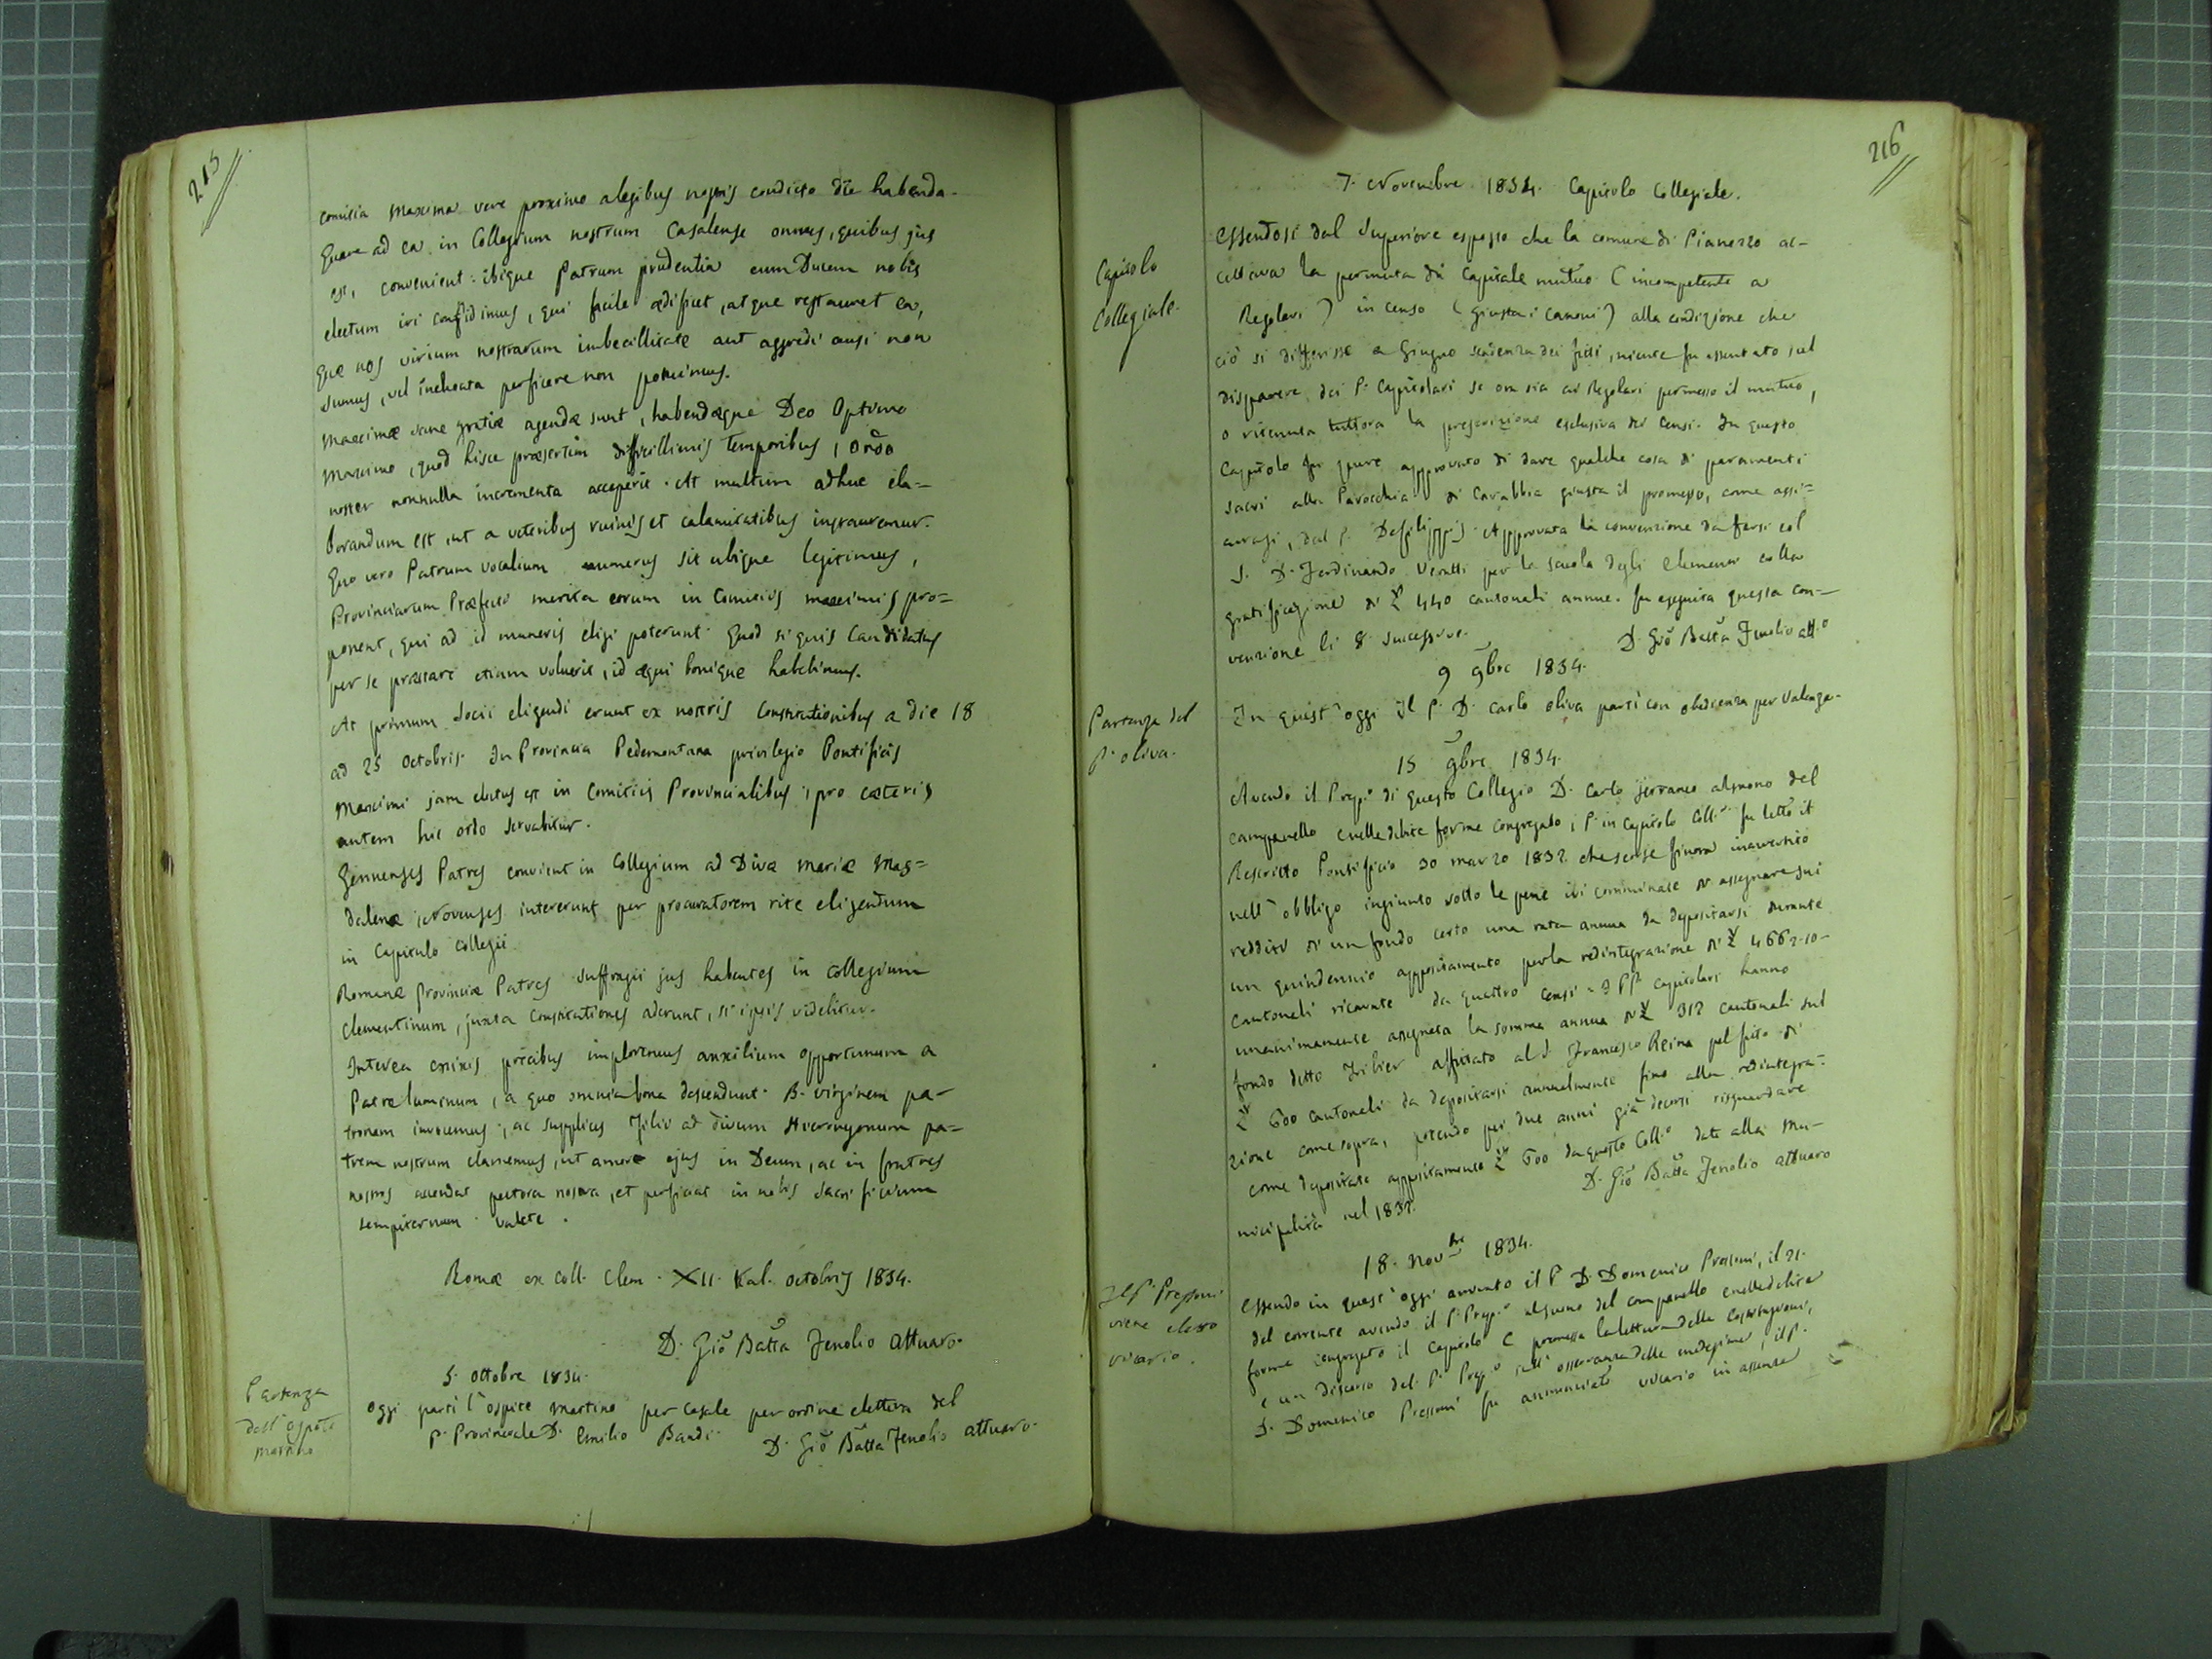 215
comitia maxima vere proximo a legibus nostris condicto die habenda.
Quare ad ea in Collegium nostrum Casalense omnes, quibus jus
est, convenient: ibique Patrum prudentia eum Ducem nobis
electum iri confidimus, qui facile ædificet, atque restauret ea,
quæ nos virium nostrarum imbecillitate aut aggredi ausi non
sumus, vel inchoata perficere non potuimus.
Maximæ sane gratiæ agendæ sunt, habendæque Deo Optimo
Maximo, quod hisce præsertim difficillimis temporibus, Ordo
noster nonnulla incrementa acceperit. At multum adhuc ela=
borandum est, ut a veteribus ruinis et calamitatibus instauremur.
Quo vero Patrum vocalium numerus sit ubique legitimus,
Provinciarum Præfecti merita eorum in Comitiis maximis pro=
ponent, qui ad id muneris eligi poterunt. Quod si quis Candidatus
per se præstare etiam voluerit, id æqui bonique habebimus.
At primum Socii eligendi erunt ex nostris Constitutionibus a die 18
ad 25 Octobris. In Provincia Pedemontana privilegio Pontificis
Maximi jam electus est in Comitiis Provincialibus, pro cæteris
autem hic ordo servabitur.
Genuenses Patres convenient in Collegium ad Divæ Mariæ Mag=
dalenæ, Novenses intererunt per procuratorem rite eligendum
in Capitulo Collegii.
Romanæ Provinciæ Patres suffragii jus habentes in Collegium
Clementinum, juxta Constitutiones aderunt, si ipsis videbitur.
Interea enixis precibus imploremus auxilium opportunum a
Patre luminum, a quo omnia bona descendunt. B. Virginem pa-
tronam invocemus, ac supplices Filii ad Divum Hieronymum pa=
trem nostrum clamemus, ut amore ejus in Deum, ac in fratres
nostros accendat pectora nostra, et perficiat in nobis sacrificium
sempiternum. Valete.
Romæ ex Coll. Clem. XII. Kal. Octobris 1834.
D. Gio Batta Fenolio Attuaro.
Partenza
dell' ospite
Martino
5. Ottobre 1834.
Oggi partì l'ospite Martino per Casale per ordine e lettera del
P. Provinciale D. Emilio Baudi. D. Gio Batta Fenolio attuaro.
216
7. Novembre 1834. Capitolo Collegiale.
Capitolo
Collegiale.
Essendosi dal Superiore esposto che la comune di Pianezzo ac-
cettava la permuta di Capitale mutuo (incompetente a
Regolari) in censo (giusta i Canoni) alla condizione che
ciò si differisse a Giugno scadenza dei fitti, niente fu assentato sul
disparere dei P. Capitolari se ora sia ai Regolari permesso il mutuo,
o ritenuta tuttora la prescrizione esclusiva dei Censi. In questo
Capitolo fu pure approvato di dare qualche cosa di paramenti
sacri alla Parocchia di Carabbia giusta il promesso, come assi=
curasi, dal P. Defilippis. Approvata la convenzione da farsi col
S. D. Ferdinando Veratti per la scuola degli elementi colla
gratificazione di £ 440 cantonali annue. Fu eseguita questa con-
venzione li 8. successivo. D. Gio Batta Fenolio att.o
9 9bre 1834.
Partenza del
P. Oliva.
In quest'oggi il P. D. Carlo Oliva partì con obedienza per Valenza.
15 9bre 1834.
Avendo il Prep.o di questo Collegio D. Carlo Ferranco al suono del
campanello e nelle debite forme congregato i P. in Capitolo Coll.e fu letto il
Rescritto Pontificio 30 marzo 1832 finora inavvertito
nell'obbligo ingiunto sotto le pene ivi comminate di assegnare sui
redditi di un fondo certo una rata annua da depositarsi durante
un quindennio appositamente per la redintegrazione di £ 4662-10-
Cantonali ricavate da quattro censi. I PP. capitolari hanno
unanimamente assegnata la somma annua di £ 312 cantonali sul
fondo detto affittato al S. Francesco Reina pel fitto di
£ 600 cantonali da depositarsi annualmente fino alla redintegra=
zione come sopra, potendo pei due anni già decorsi risguardare
come depositate appositamente £ 600 da questo Coll.o date alla Mu-
nicipalità nel 1832. D. Gio Batta Fenolio attuaro
18. Nov.bre 1834.
Il P. Pressoni
viene eletto
vicario.
Essendo in quest'oggi arrivato il P. D. Domenico Pressoni, il 21.
del corrente avendo il P. Prep.o al suono del campanello e nelle debite
forme congregato il Capitolo e premessa la lettura delle Costituzioni,
e un discorso del P. Prep.o sull'osservanza delle medesime, il P.
D. Domenico Pressoni fu annunciato vicario in assenza